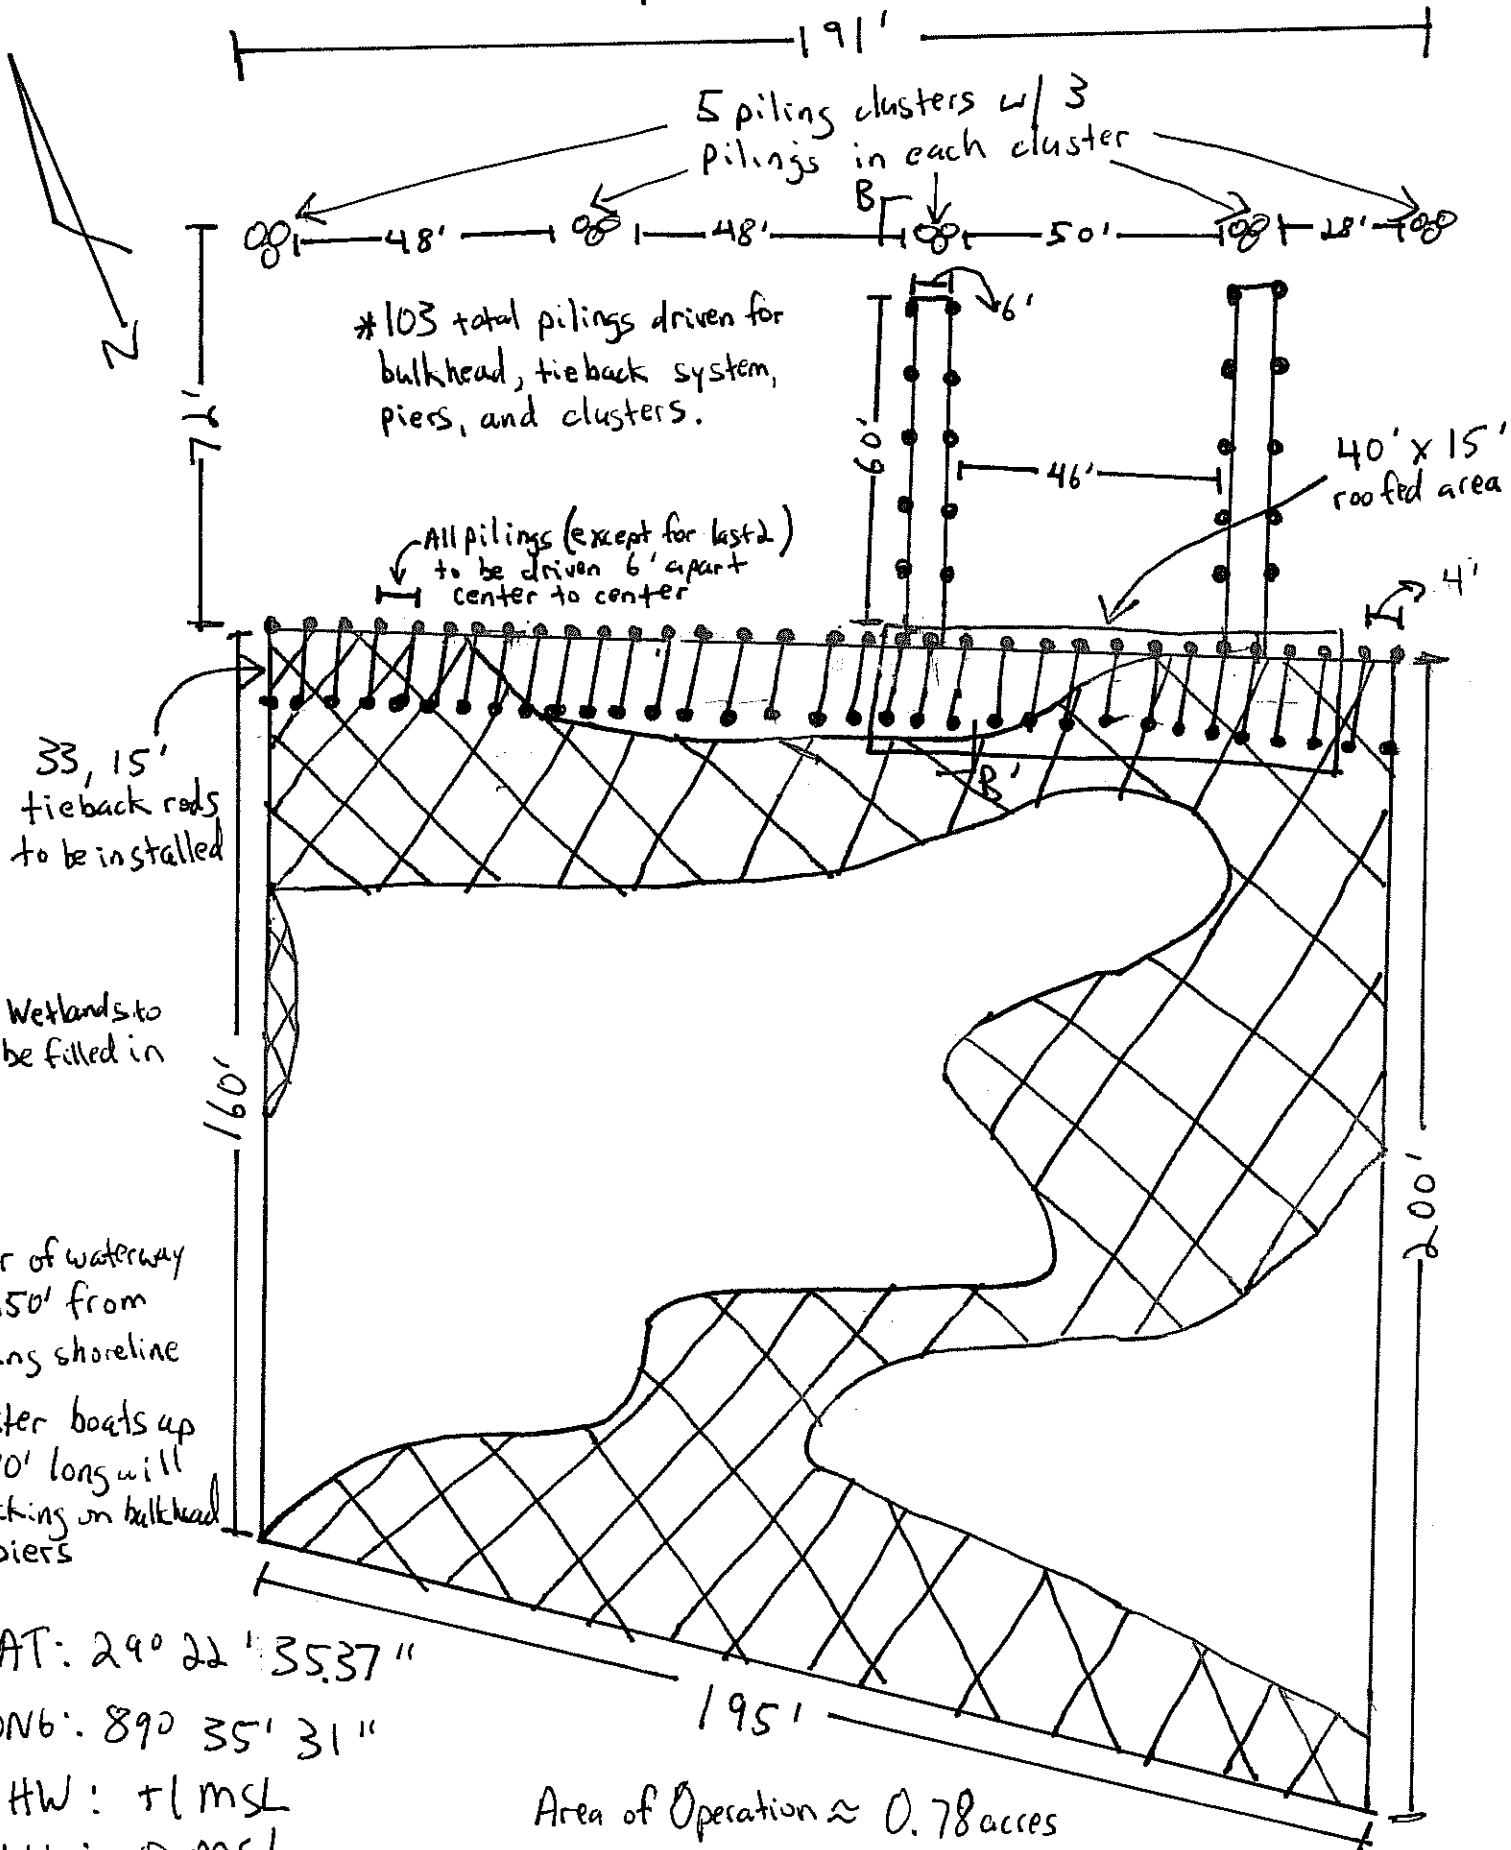 191'
5 piling clusters w/ 3
pilings in each cluster
B
48'
48'
50'
28'
N
*103 total pilings driven for
bulkhead, tieback system,
piers, and clusters.
6'
72'
60'
46'
40' x 15'
roofed area
All pilings (except for last 2)
to be driven 6' apart
center to center
4'
33, 15'
tieback rods
to be installed
B'
Wetlands to
be filled in
160'
200'
r of waterway
50' from
ng shoreline
ter boats up
0' long will
cking on bulkhead
piers
195'
AT: 29° 22' 35.37"
ONG: 89° 35' 31"
HW: +1 MSL
Area of Operation ≈ 0.78 acres